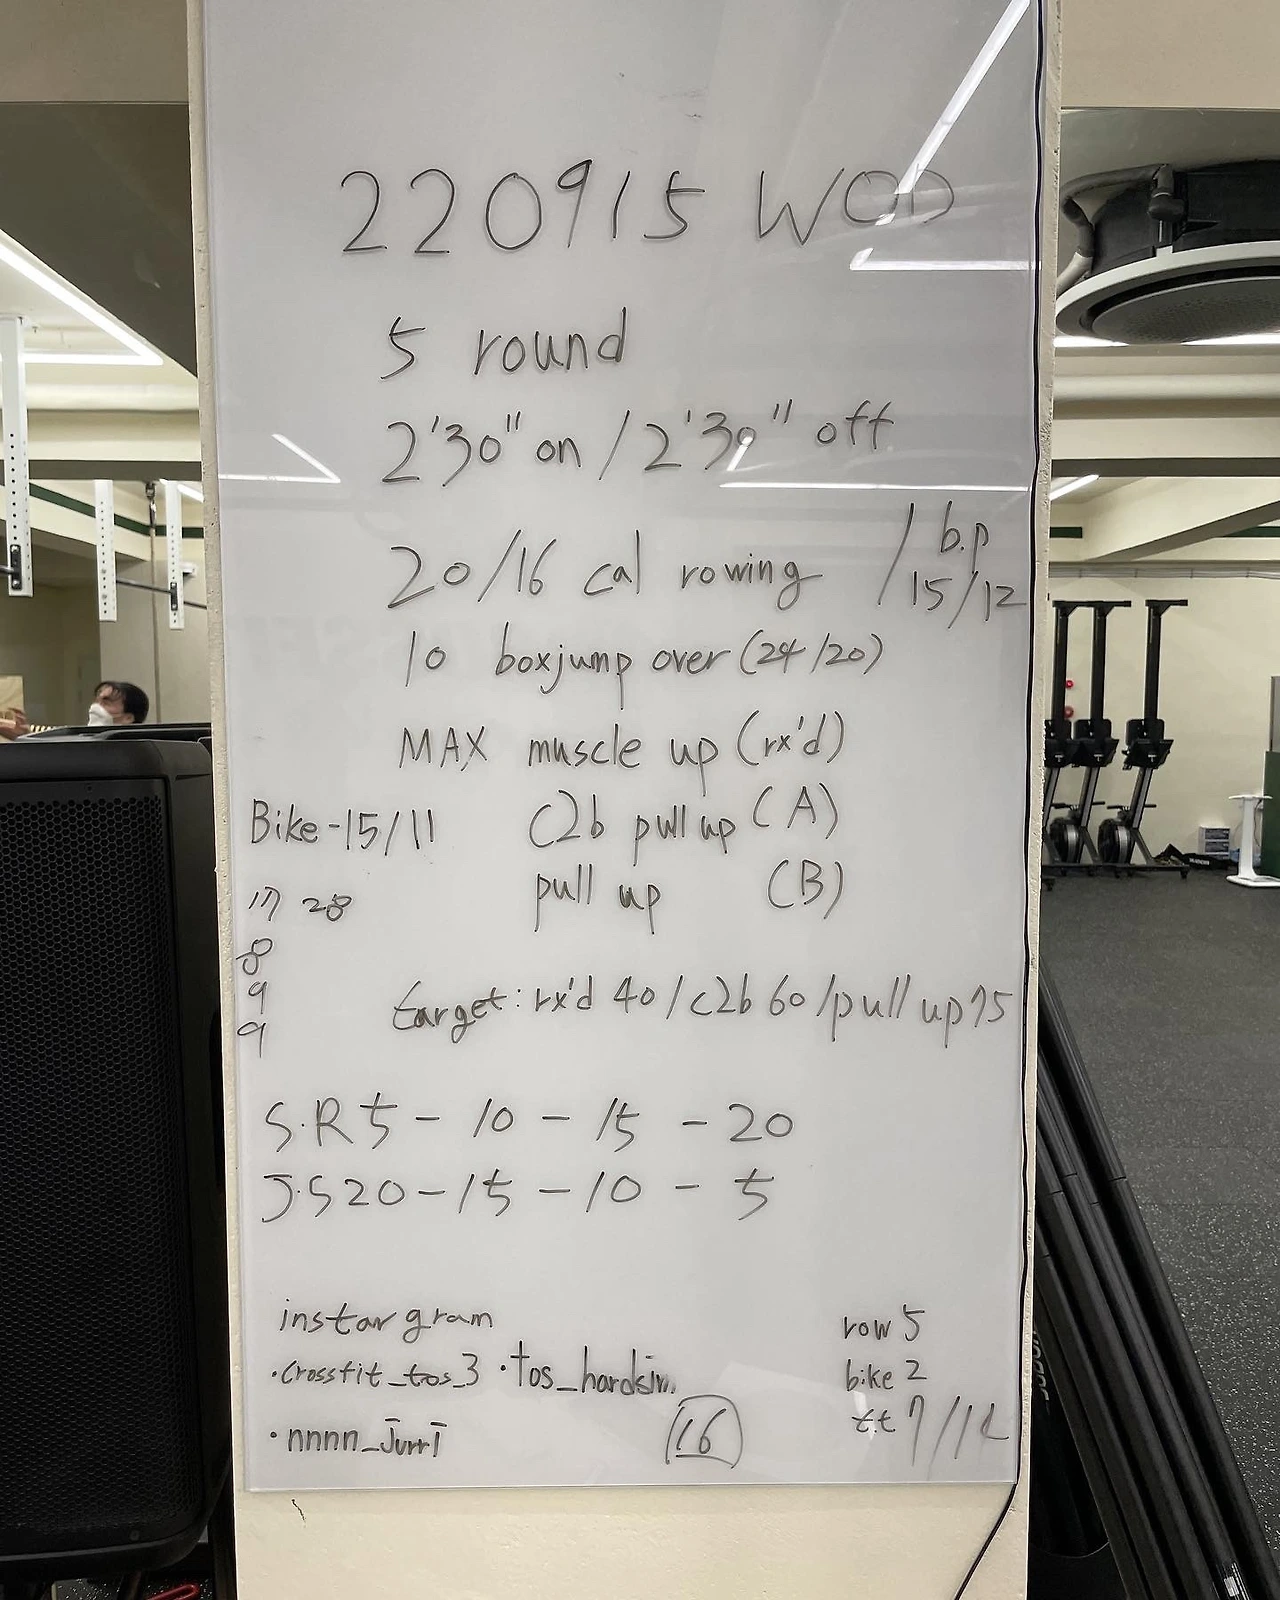 220915 WOD
5 round
2'30" on / 2'30" off
20/16 cal rowing / b.p 15/12
10 boxjump over (24/20)
MAX muscle up (rx'd)
c2b pull up (A)
pull up (B)
Bike-15/11
17 28
8
9
9
target: rx'd 40/c2b 60/pull up 75
S.R 5 - 10 - 15 - 20
J.S 20 - 15 - 10 - 5
instargram
·crossfit_tos_3 ·tos_hardsim
·nnnn_jurri
16
row 5
bike 2
t.t 7/14